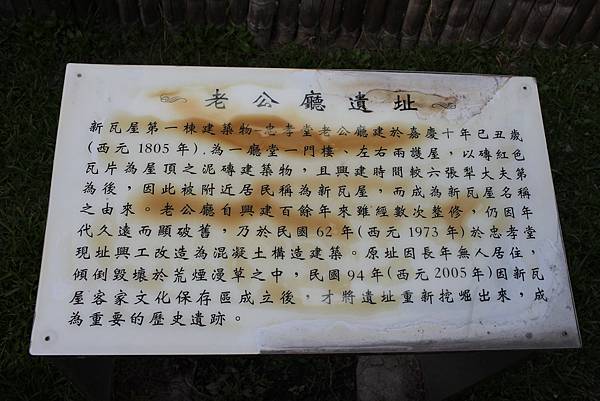 老公廳遺址
新瓦屋第一棟建築物-忠孝堂老公廳建於嘉慶十年已丑歲
(西元 1805 年).為一廳堂一門樓、左右兩護屋,以磚紅色
瓦片為屋頂之泥磚建築物,且興建時間較六張犁大夫第
為後,因此被附近居民稱為新瓦屋,而成為新瓦屋名稱
之由來。老公廳自興建百餘年來雖經數次整修,仍因年
代久遠而顯破舊,乃於民國 62 年(西元 1973 年)於忠孝堂
現址興工改造為混凝土構造建築。原址因長年無人居住,
傾倒毀壞於荒煙漫草之中,民國 94 年(西元 2005 年)因新瓦
屋客家文化保存區成立後,才將遺址重新挖掘出來,成
為重要的歷史遺跡。